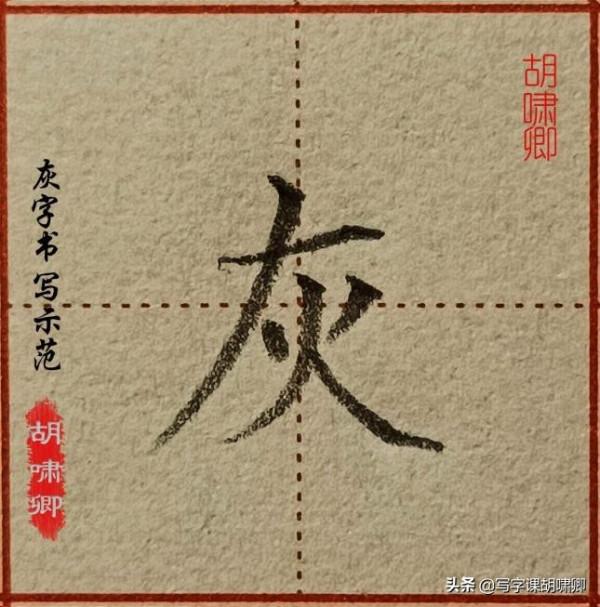 胡啸卿
灰字书写示范
灰
胡啸卿
头条 @写字课胡啸卿